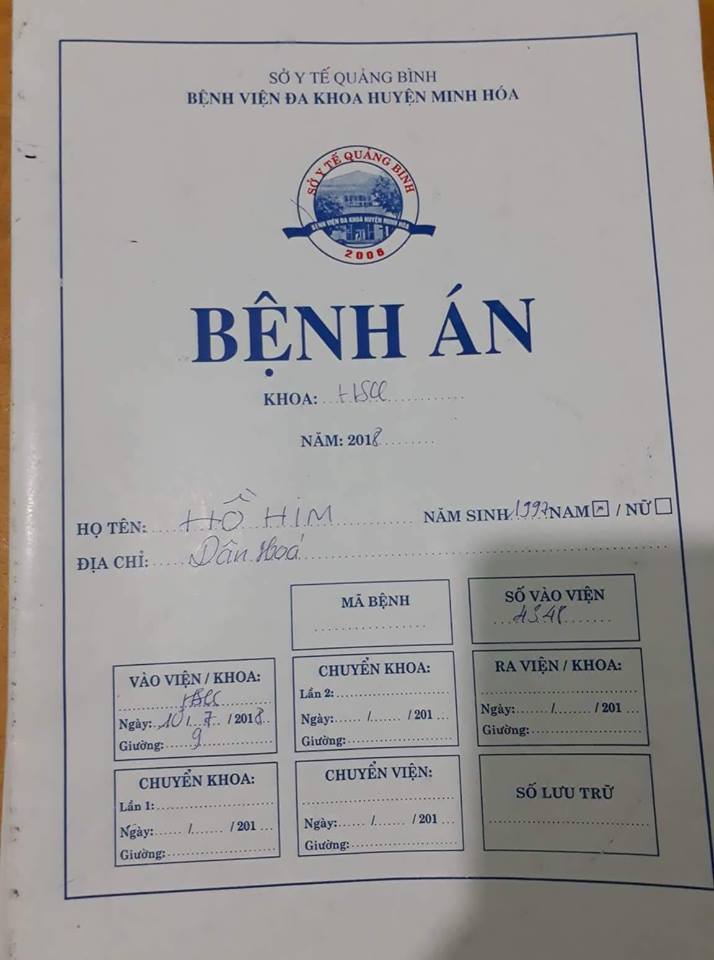 SỞ Y TẾ QUẢNG BÌNH
BỆNH VIỆN ĐA KHOA HUYỆN MINH HÓA
SỞ Y TẾ QUẢNG BÌNH
BỆNH VIỆN ĐA KHOA HUYỆN MINH HÓA
2006
BỆNH ÁN
KHOA: HSCC
NĂM: 2018
HỌ TÊN: HỒ HIM NĂM SINH 1997 NAM / NỮ
ĐỊA CHỈ: Dân Hoá
MÃ BỆNH
SỐ VÀO VIỆN
VÀO VIỆN / KHOA:
HSCC
Ngày: 10 / 7 / 2018
Giường: 9
CHUYỂN KHOA:
Lần 2:
Ngày: / / 201
Giường:
RA VIỆN / KHOA:
Ngày: / / 201
Giường:
CHUYỂN KHOA:
Lần 1:
Ngày: / / 201
Giường:
CHUYỂN VIỆN:
Ngày: / / 201
Giường:
SỐ LƯU TRỮ